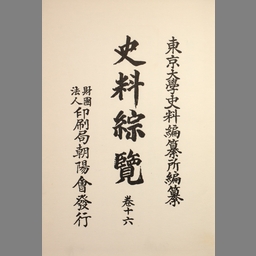 東京大學史料編纂所編纂
史料綜覽
卷十六
財團法人印刷局朝陽會發行